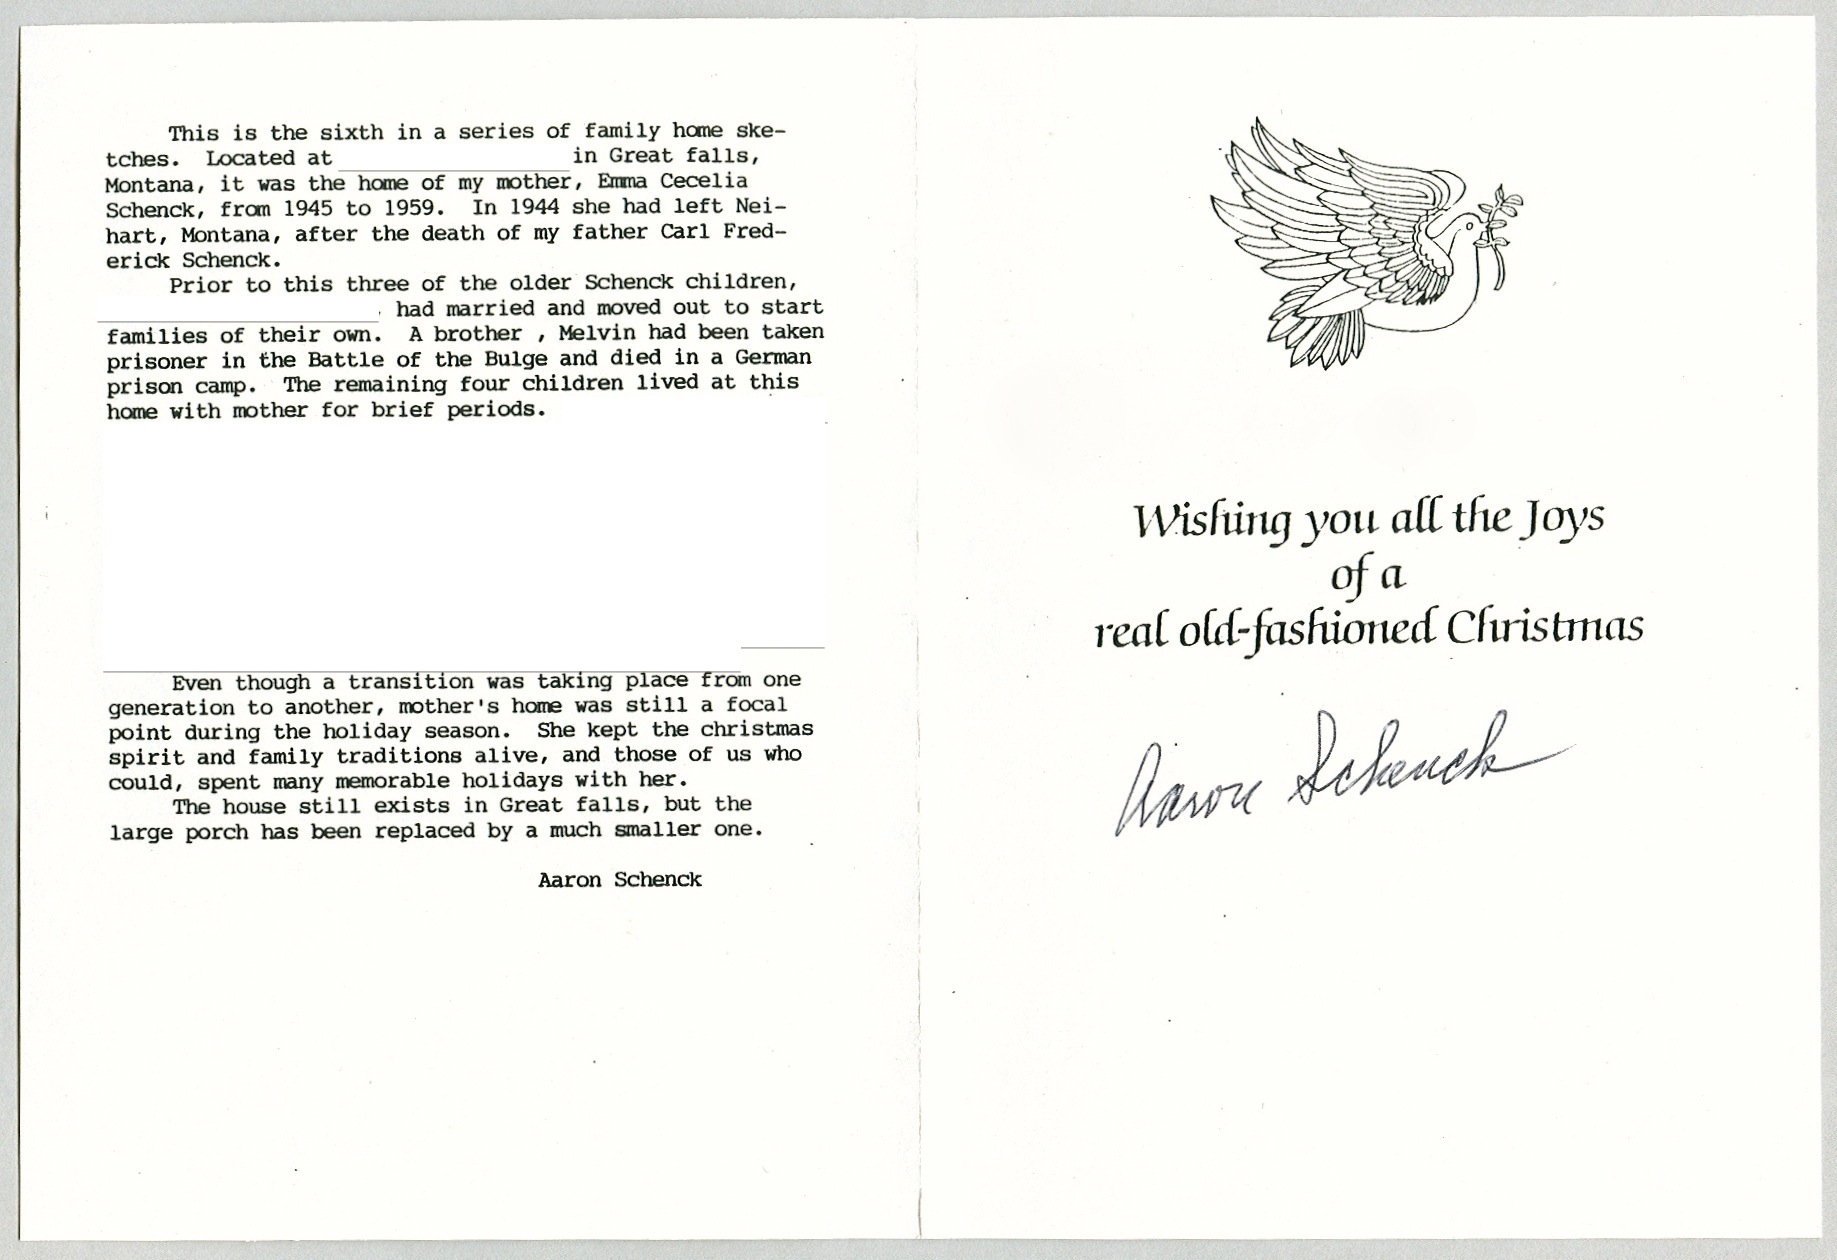 This is the sixth in a series of family home ske-
tches. Located at in Great falls,
Montana, it was the home of my mother, Emma Cecelia
Schenck, from 1945 to 1959. In 1944 she had left Nei-
hart, Montana, after the death of my father Carl Fred-
erick Schenck.
Prior to this three of the older Schenck children,
had married and moved out to start
families of their own. A brother , Melvin had been taken
prisoner in the Battle of the Bulge and died in a German
prison camp. The remaining four children lived at this
home with mother for brief periods.
Even though a transition was taking place from one
generation to another, mother's home was still a focal
point during the holiday season. She kept the christmas
spirit and family traditions alive, and those of us who
could, spent many memorable holidays with her.
The house still exists in Great falls, but the
large porch has been replaced by a much smaller one.
Aaron Schenck
Wishing you all the Joys
of a
real old-fashioned Christmas
Aaron Schenck